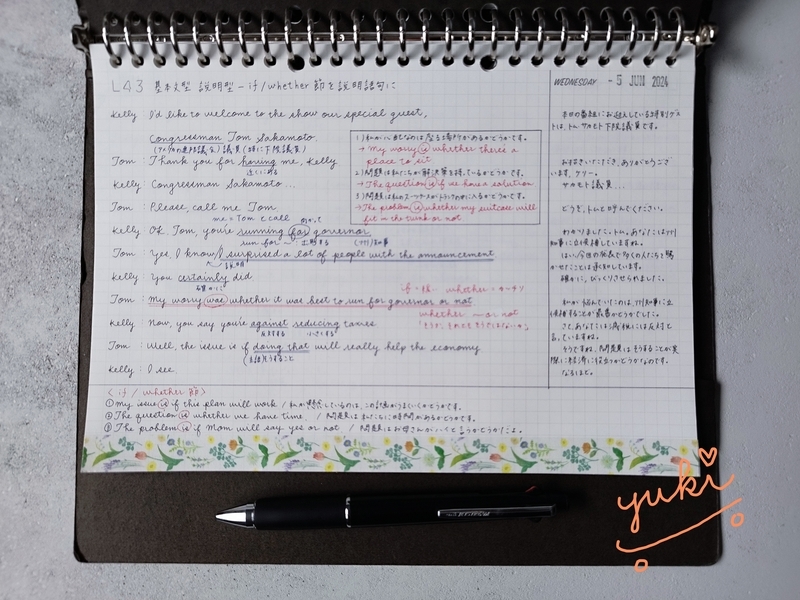 L43 基本文型 説明型 - if/whether 節を説明語句に
WEDNESDAY - 5 JUN 2024
Kelly : I'd like to welcome to the show our special guest,
Congressman Tom Sakamoto
(アメリカの連邦議会) 議員 (特に下院議員)
Tom : Thank you for having me, Kelly
Kelly : Congressman Sakamoto...
Tom : Please, call me Tom
me = Tom と call
Kelly : OK Tom, you're running for governor
run for ~ : 出馬する (州)知事
Tom : Yes, I know I surprised a lot of people with the announcement
説明
Kelly : You certainly did
確かに
Tom : My worry was whether it was best to run for governor or not
Kelly : Now, you say you're against reducing taxes
反対する 小さくする
Tom : Well, the issue is if doing that will really help the economy
Kelly : I see.
1) 私が心配なのは座る場所があるかどうかです。
→ My worry is whether there's a
place to sit
2) 問題は私たちが解決策を持っているかどうかです。
→ The question is if we have a solution
3) 問題は私のスーツケースがトランクの中に入るかどうかです。
→ The problem is whether my suitcase will
fit in the trunk or not
whether ~ or not
「そうか、それともそうではないか」
本日の番組にお迎えしている特別ゲス
トは、トム・サカモト下院議員です。
お招きいただき、ありがとうござ
います、ケリー。
サカモト議員...
どうぞ、トムと呼んでください。
わかりました。トム、あなたは州
知事に立候補していますね。
はい、今回の発表で多くの人たちを驚
かせたことは承知しています。
確かに、びっくりさせられました。
私が悩んでいたのは、州知事に立
候補することが最善かどうかでした。
さて、あなたは減税には反対と
言っていますね。
そうですね、問題はそうすることが実
際に経済に役立つかどうかなのです。
なるほど。
< if / whether 節 >
① My issue is if this plan will work / 私が懸念しているのは、この計画がうまくいくかどうかです。
② The question is whether we have time / 問題は私たちに時間があるかどうかです。
③ The problem is if Mom will say yes or not / 問題はお母さんがいいと言うかどうかだよ。
yuki